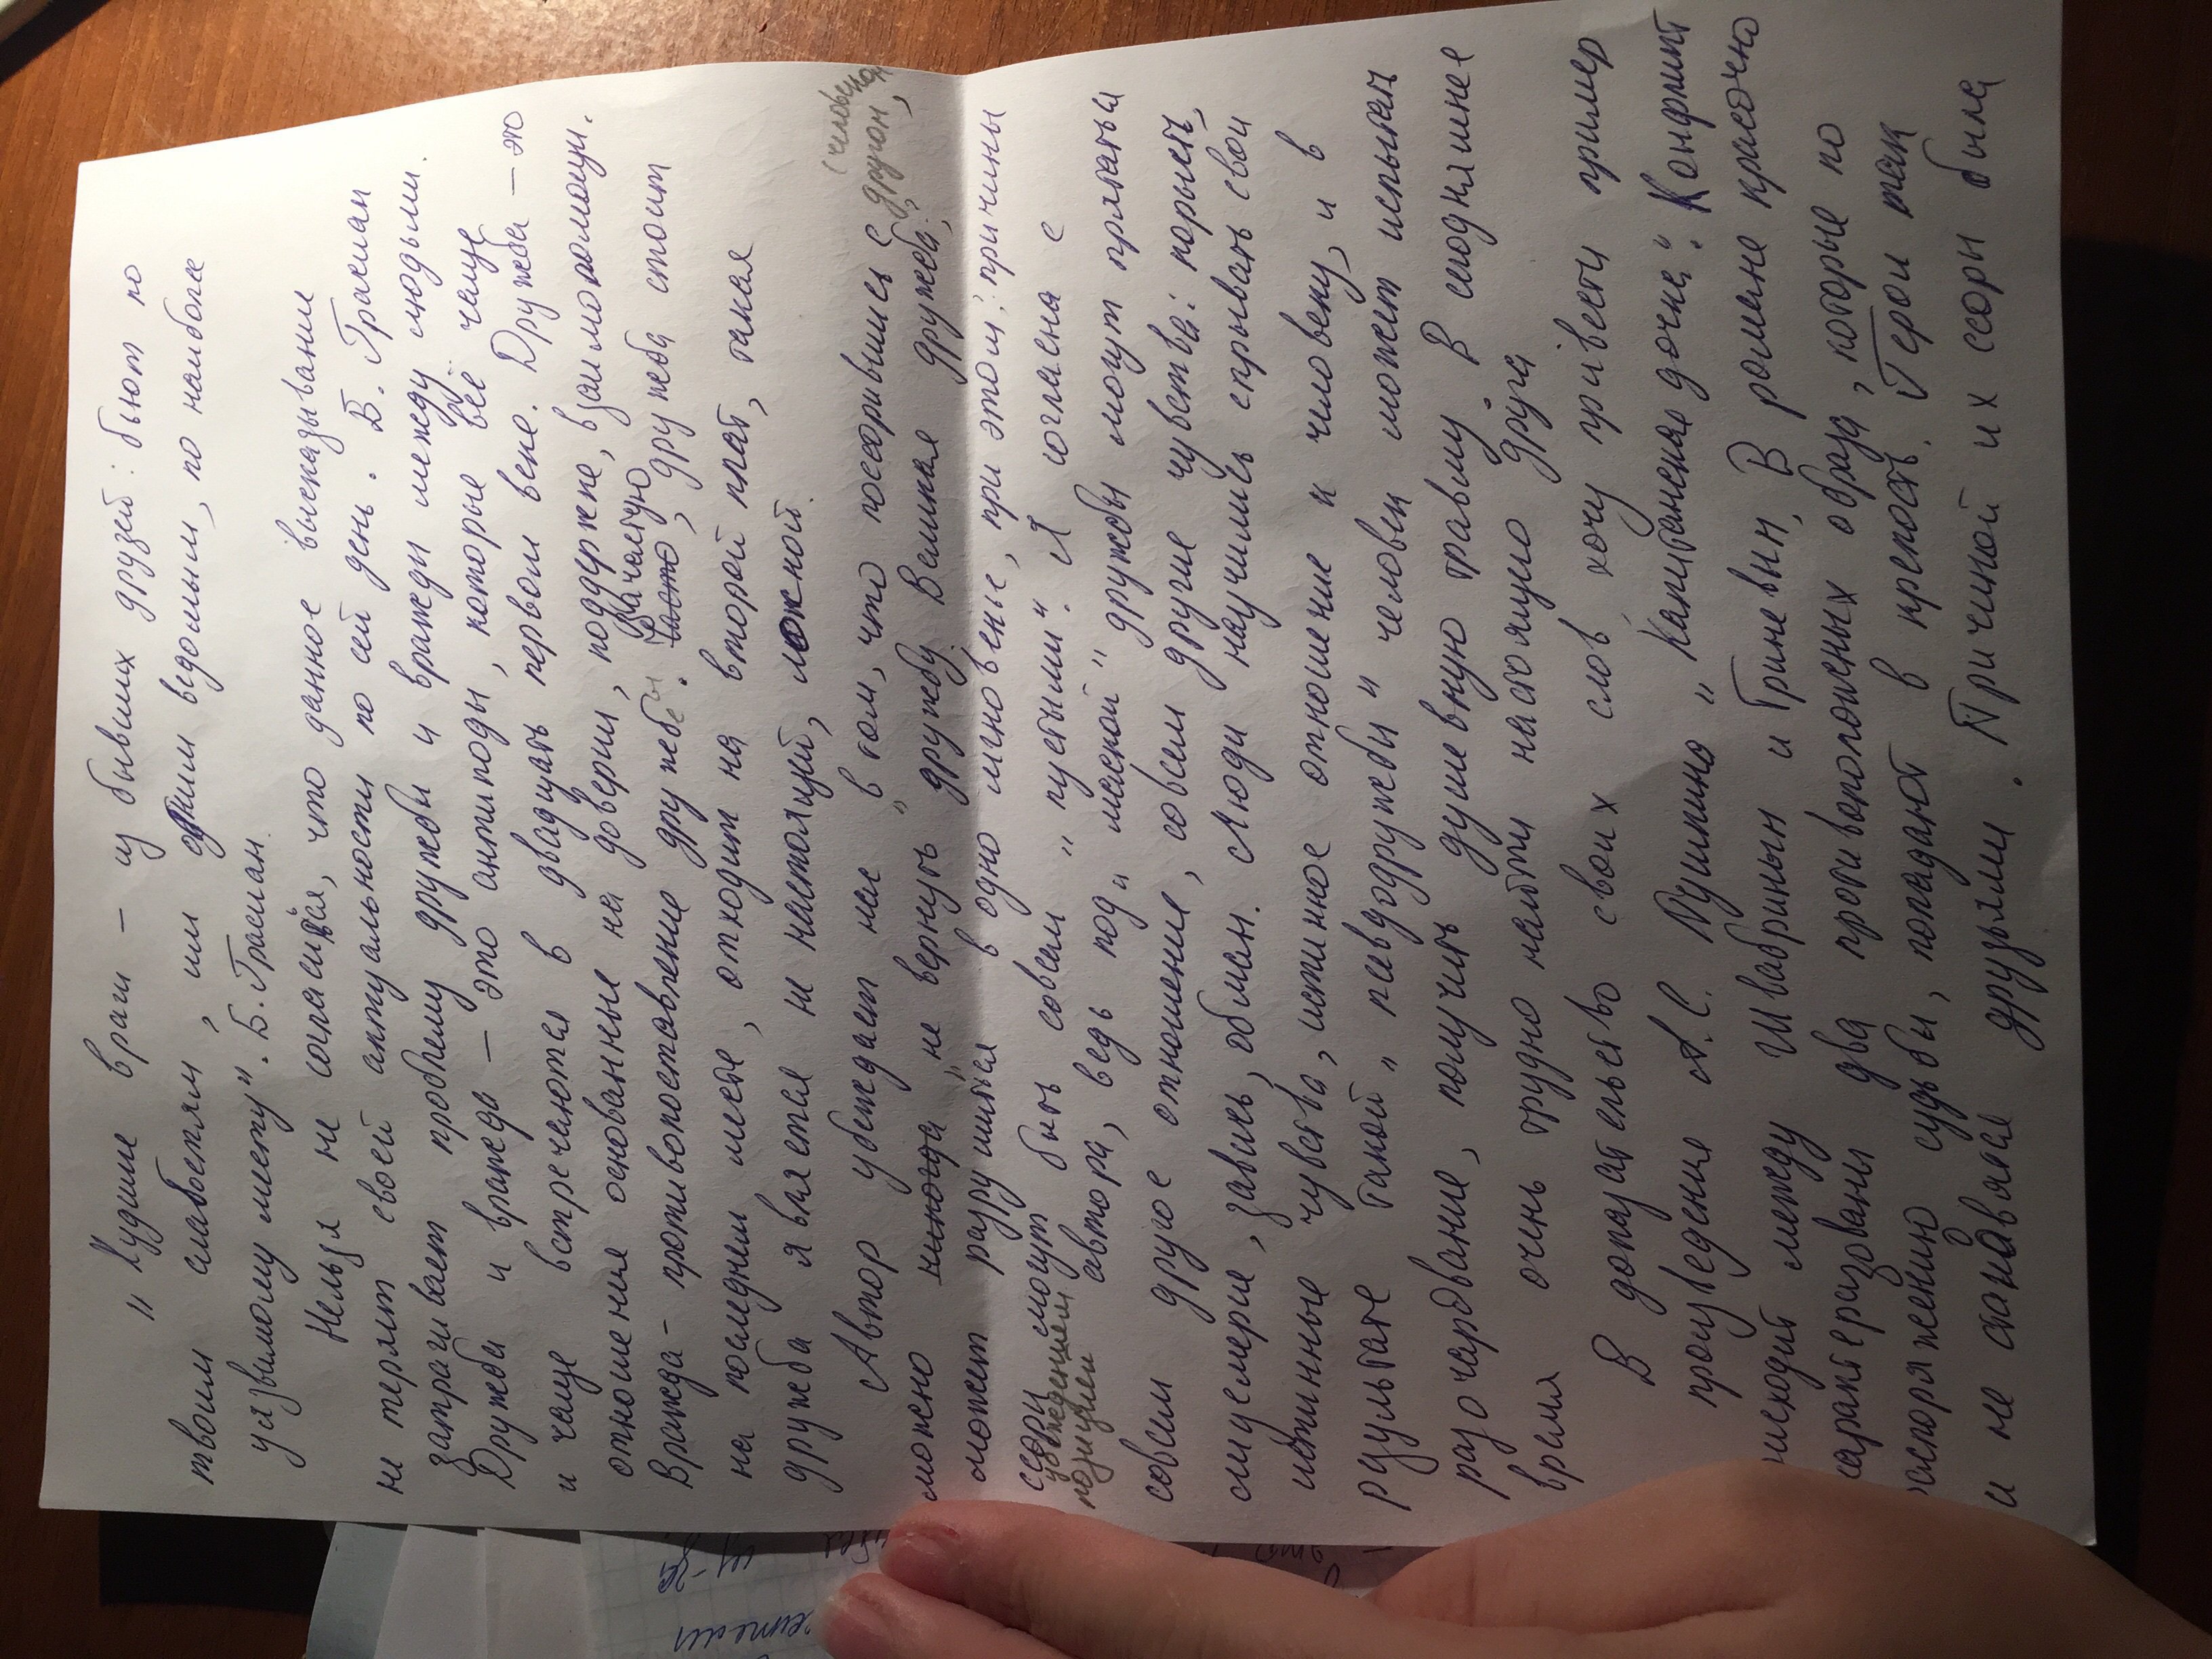 "Худшие враги – из бывших друзей: бьют по
твоим слабостям, им одним ведомым, по наиболее
уязвимому месту". Б. Грасиан.
Нельзя не согласиться, что данное высказывание
не теряет своей актуальности по сей день. Б. Грасиан
затрагивает проблему дружбы и вражды между людьми.
Дружба и вражда – это антиподы, которые всё чаще
и чаще встречаются в двадцать первом веке. Дружба – это
отношения основанные на доверии, поддержке, взаимопомощи.
Вражда – противопоставление дружбе. Зачастую, дружба стоит
на последнем месте, отходит на второй план, такая
дружба является не настоящей, ложной.
(человеком
Автор убеждает нас в том, что поссорившись с другом,
можно никогда "не вернуть" дружбу. Великая дружба,
может разрушится в одно мгновенье, при этом: причины
ссоры могут быть совсем "пустыми". Я согласна с
убеждением
позицией автора, ведь под "маской" дружбы могут прятаться
совсем другое отношение, совсем другие чувства: корысть,
лицемерие, зависть, обман. Люди научились скрывать свои
истинные чувства, истинное отношение к человеку, и в
результате такой "псевдодружбы" человек может испытать
разочарование, получить душевную травму. В сегодняшнее
время очень трудно найти настоящего друга
В доказательство своих слов хочу привести пример
произведения А.С. Пушкина "Капитанская дочка". Конфликт
происходит между Швабриным и Гриневым. В романе красочно
характеризованы два противоположеных образа, которые по
распоряжению судьбы, попадают в крепость. Герои так
и не становятся друзьями. Причиной их ссоры была